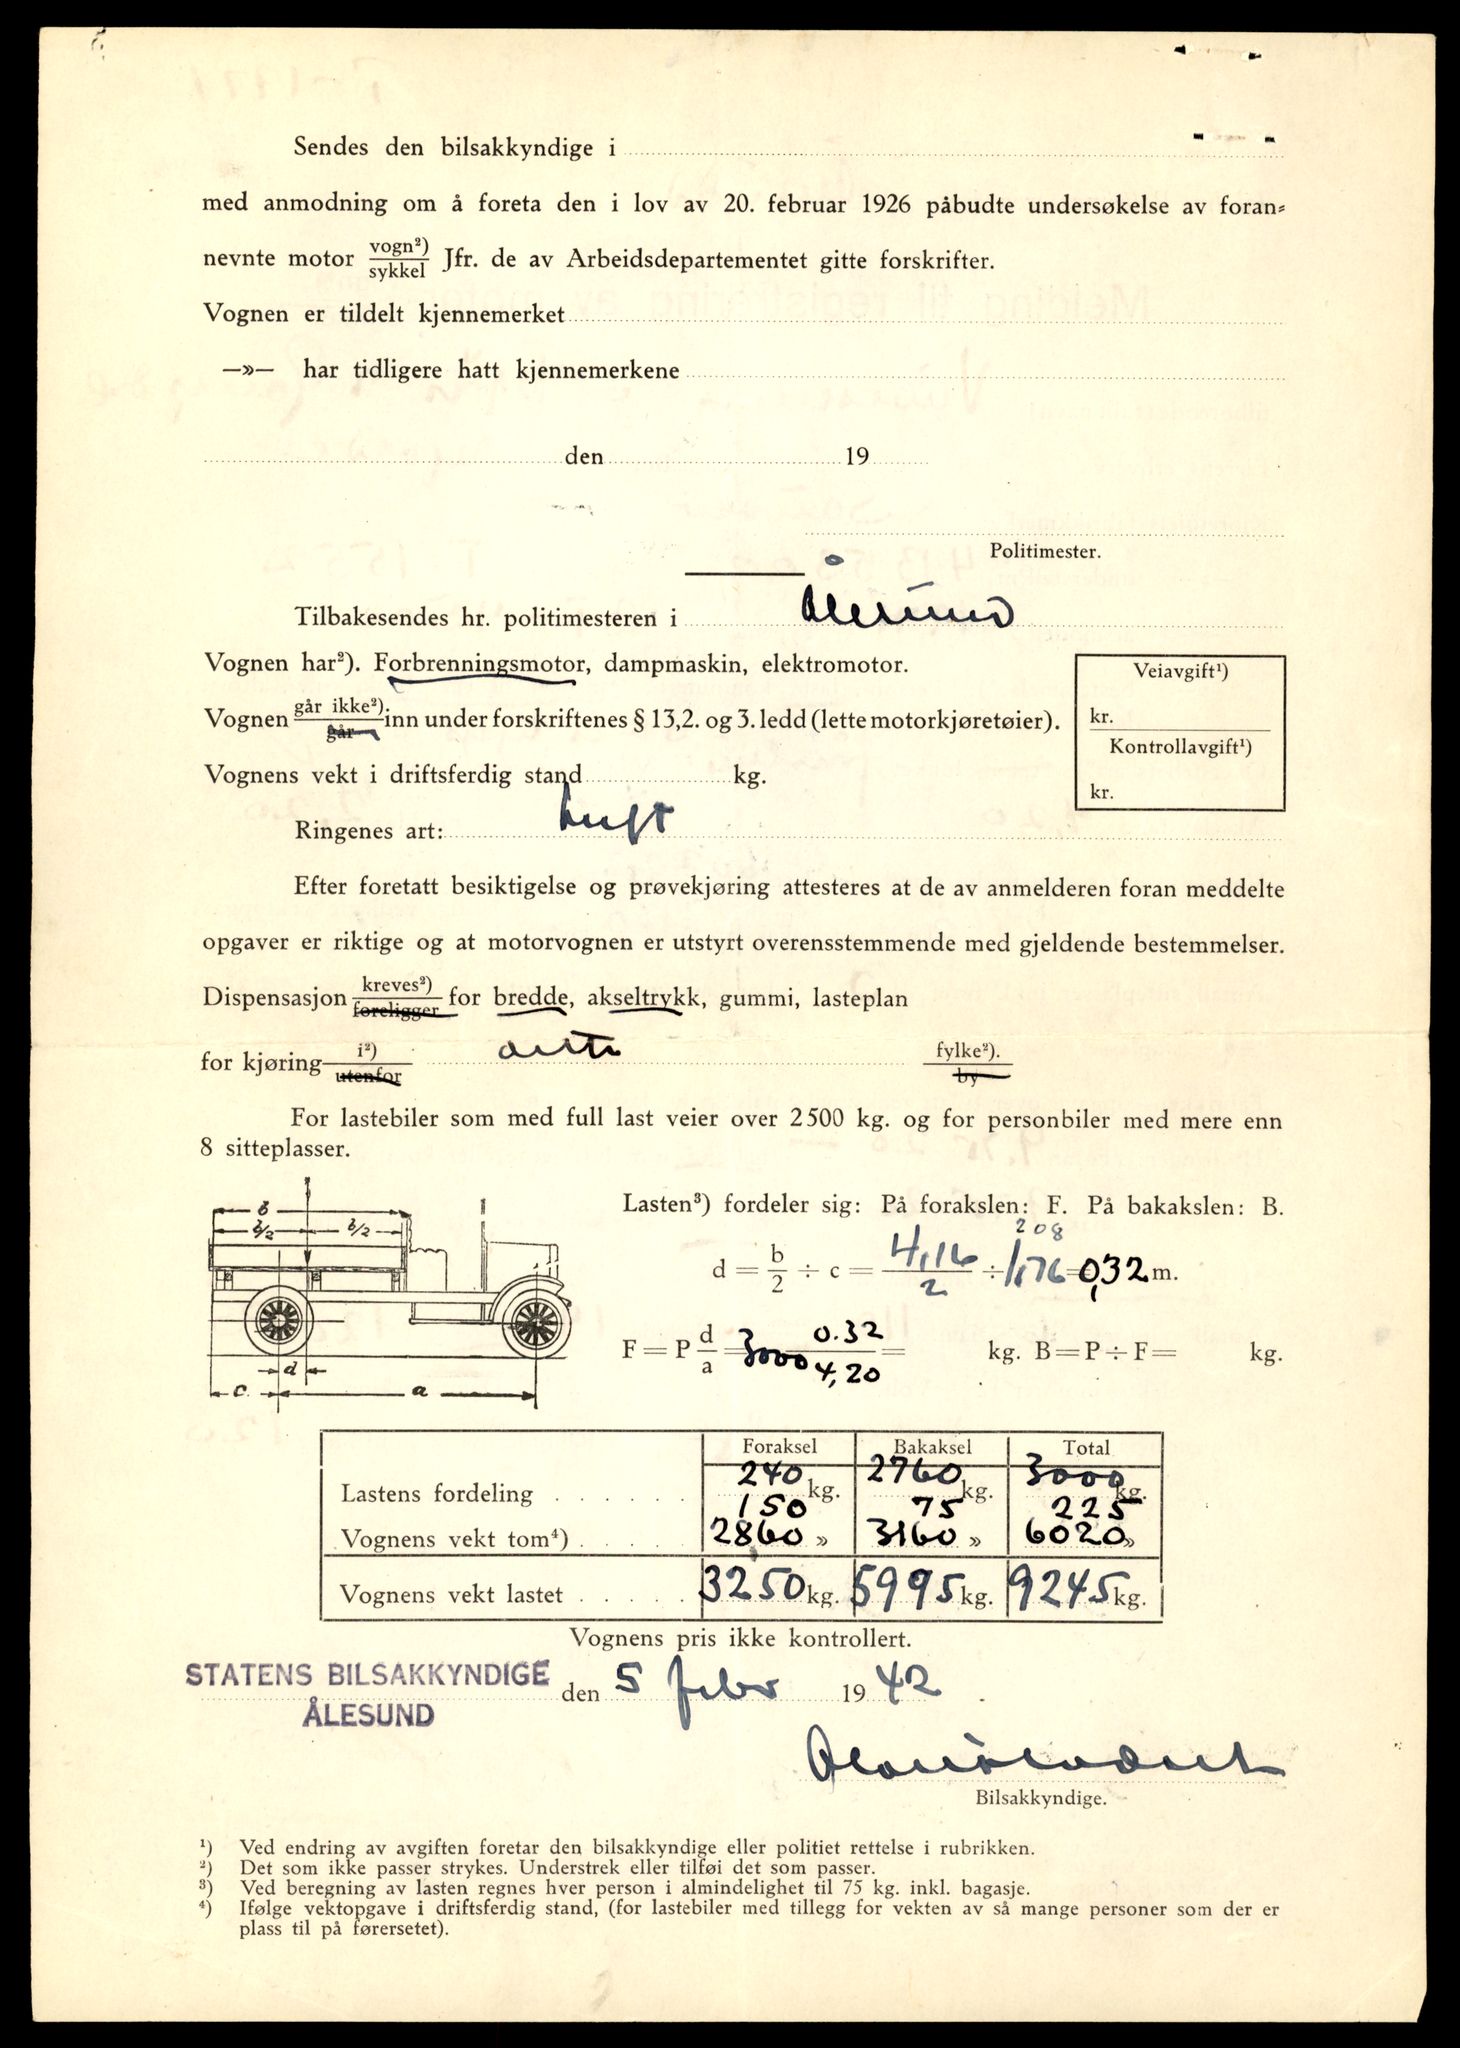 Sendes den bilsakkyndige i
med anmodning om å foreta den i lov av 20. februar 1926 påbudte undersøkelse av foran=
nevnte motor vogn²)/sykkel Jfr. de av Arbeidsdepartementet gitte forskrifter.
Vognen er tildelt kjennemerket
—»— har tidligere hatt kjennemerkene
den 19
Politimester.
Tilbakesendes hr. politimesteren i Ålesund
Vognen har²). Forbrenningsmotor, dampmaskin, elektromotor.
Vognen går ikke²)/går inn under forskriftenes § 13,2. og 3. ledd (lette motorkjøretøier).
Veiavgift¹)
kr.
Kontrollavgift¹)
kr.
Vognens vekt i driftsferdig stand kg.
Ringenes art: Luft
Efter foretatt besiktigelse og prøvekjøring attesteres at de av anmelderen foran meddelte
opgaver er riktige og at motorvognen er utstyrt overensstemmende med gjeldende bestemmelser.
Dispensasjon kreves²)/foreligger for bredde, akseltrykk, gummi, lasteplan
for kjøring i²)/utenfor dette fylke²)./by
For lastebiler som med full last veier over 2500 kg. og for personbiler med mere enn
8 sitteplasser.
b
b/2 b/2
d
c. a
Lasten³) fordeler sig: På forakslen: F. På bakakslen: B.
208
d = b/2 ÷ c = 4,16/2 ÷ 1,76 = 0,32 m.
F = P d/a = 3000 0.32/4,20 = kg. B = P ÷ F = kg.
Foraksel Bakaksel Total
Lastens fordeling . . . . . . 240 kg. 2760 kg. 3000 kg.
150 75 225
Vognens vekt tom⁴) . . . . . 2860 » 3160 » 6020 »
Vognens vekt lastet . . . . . 3250 kg. 5995 kg. 9245 kg.
Vognens pris ikke kontrollert.
STATENS BILSAKKYNDIGE
ÅLESUND
den 5 febr 1942
Bilsakkyndige.
¹) Ved endring av avgiften foretar den bilsakkyndige eller politiet rettelse i rubrikken.
²) Det som ikke passer strykes. Understrek eller tilføi det som passer.
³) Ved beregning av lasten regnes hver person i almindelighet til 75 kg. inkl. bagasje.
⁴) Ifølge vektopgave i driftsferdig stand, (for lastebiler med tillegg for vekten av så mange personer som der er
plass til på førersetet).